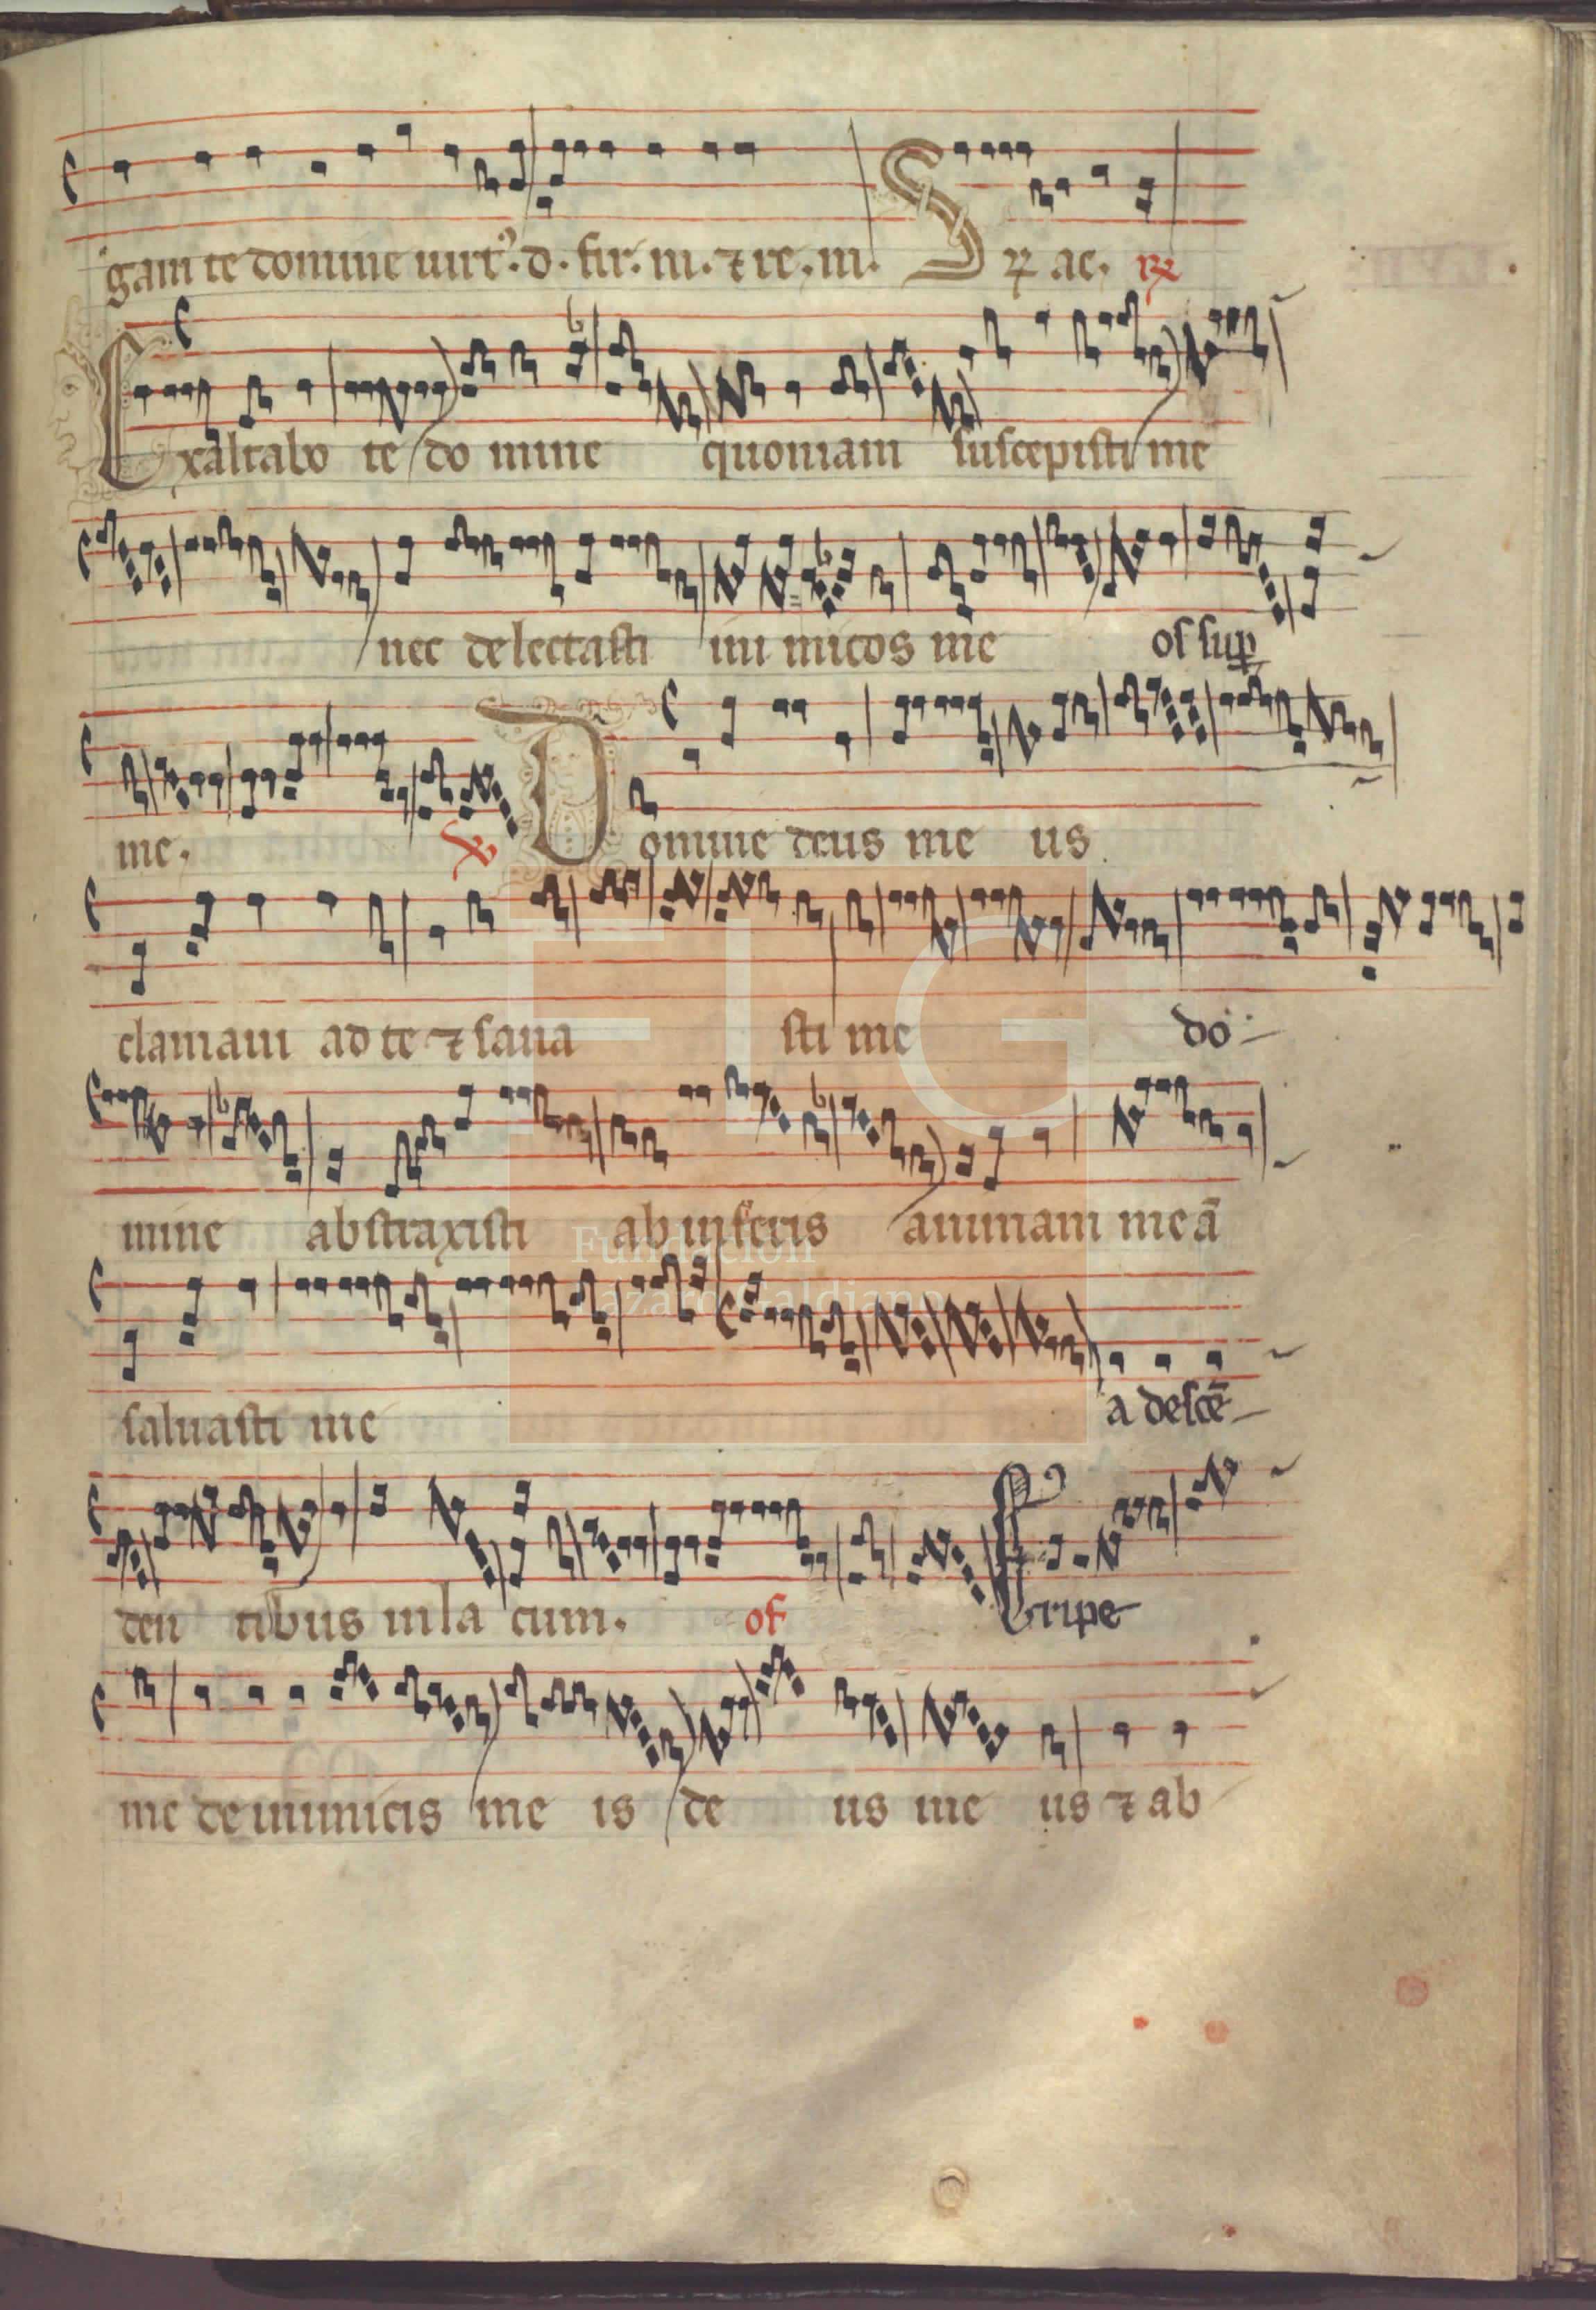 gam te domine uirt⁹. d. fir. m. ⁊ re. m. Sp ac. ℟
Exaltabo te do mine quoniam suscepisti me
nec delectasti ini micos me os sup
me. ℣ Domine deus me us
clamaui ad te ⁊ sana sti me do
mine abstraxisti ab inferis animam meā
saluasti me a descē
den tibus in la cum. of Eripe
me de inimicis me is de us me us ⁊ ab
FLG
Fundación
Lázaro Galdiano